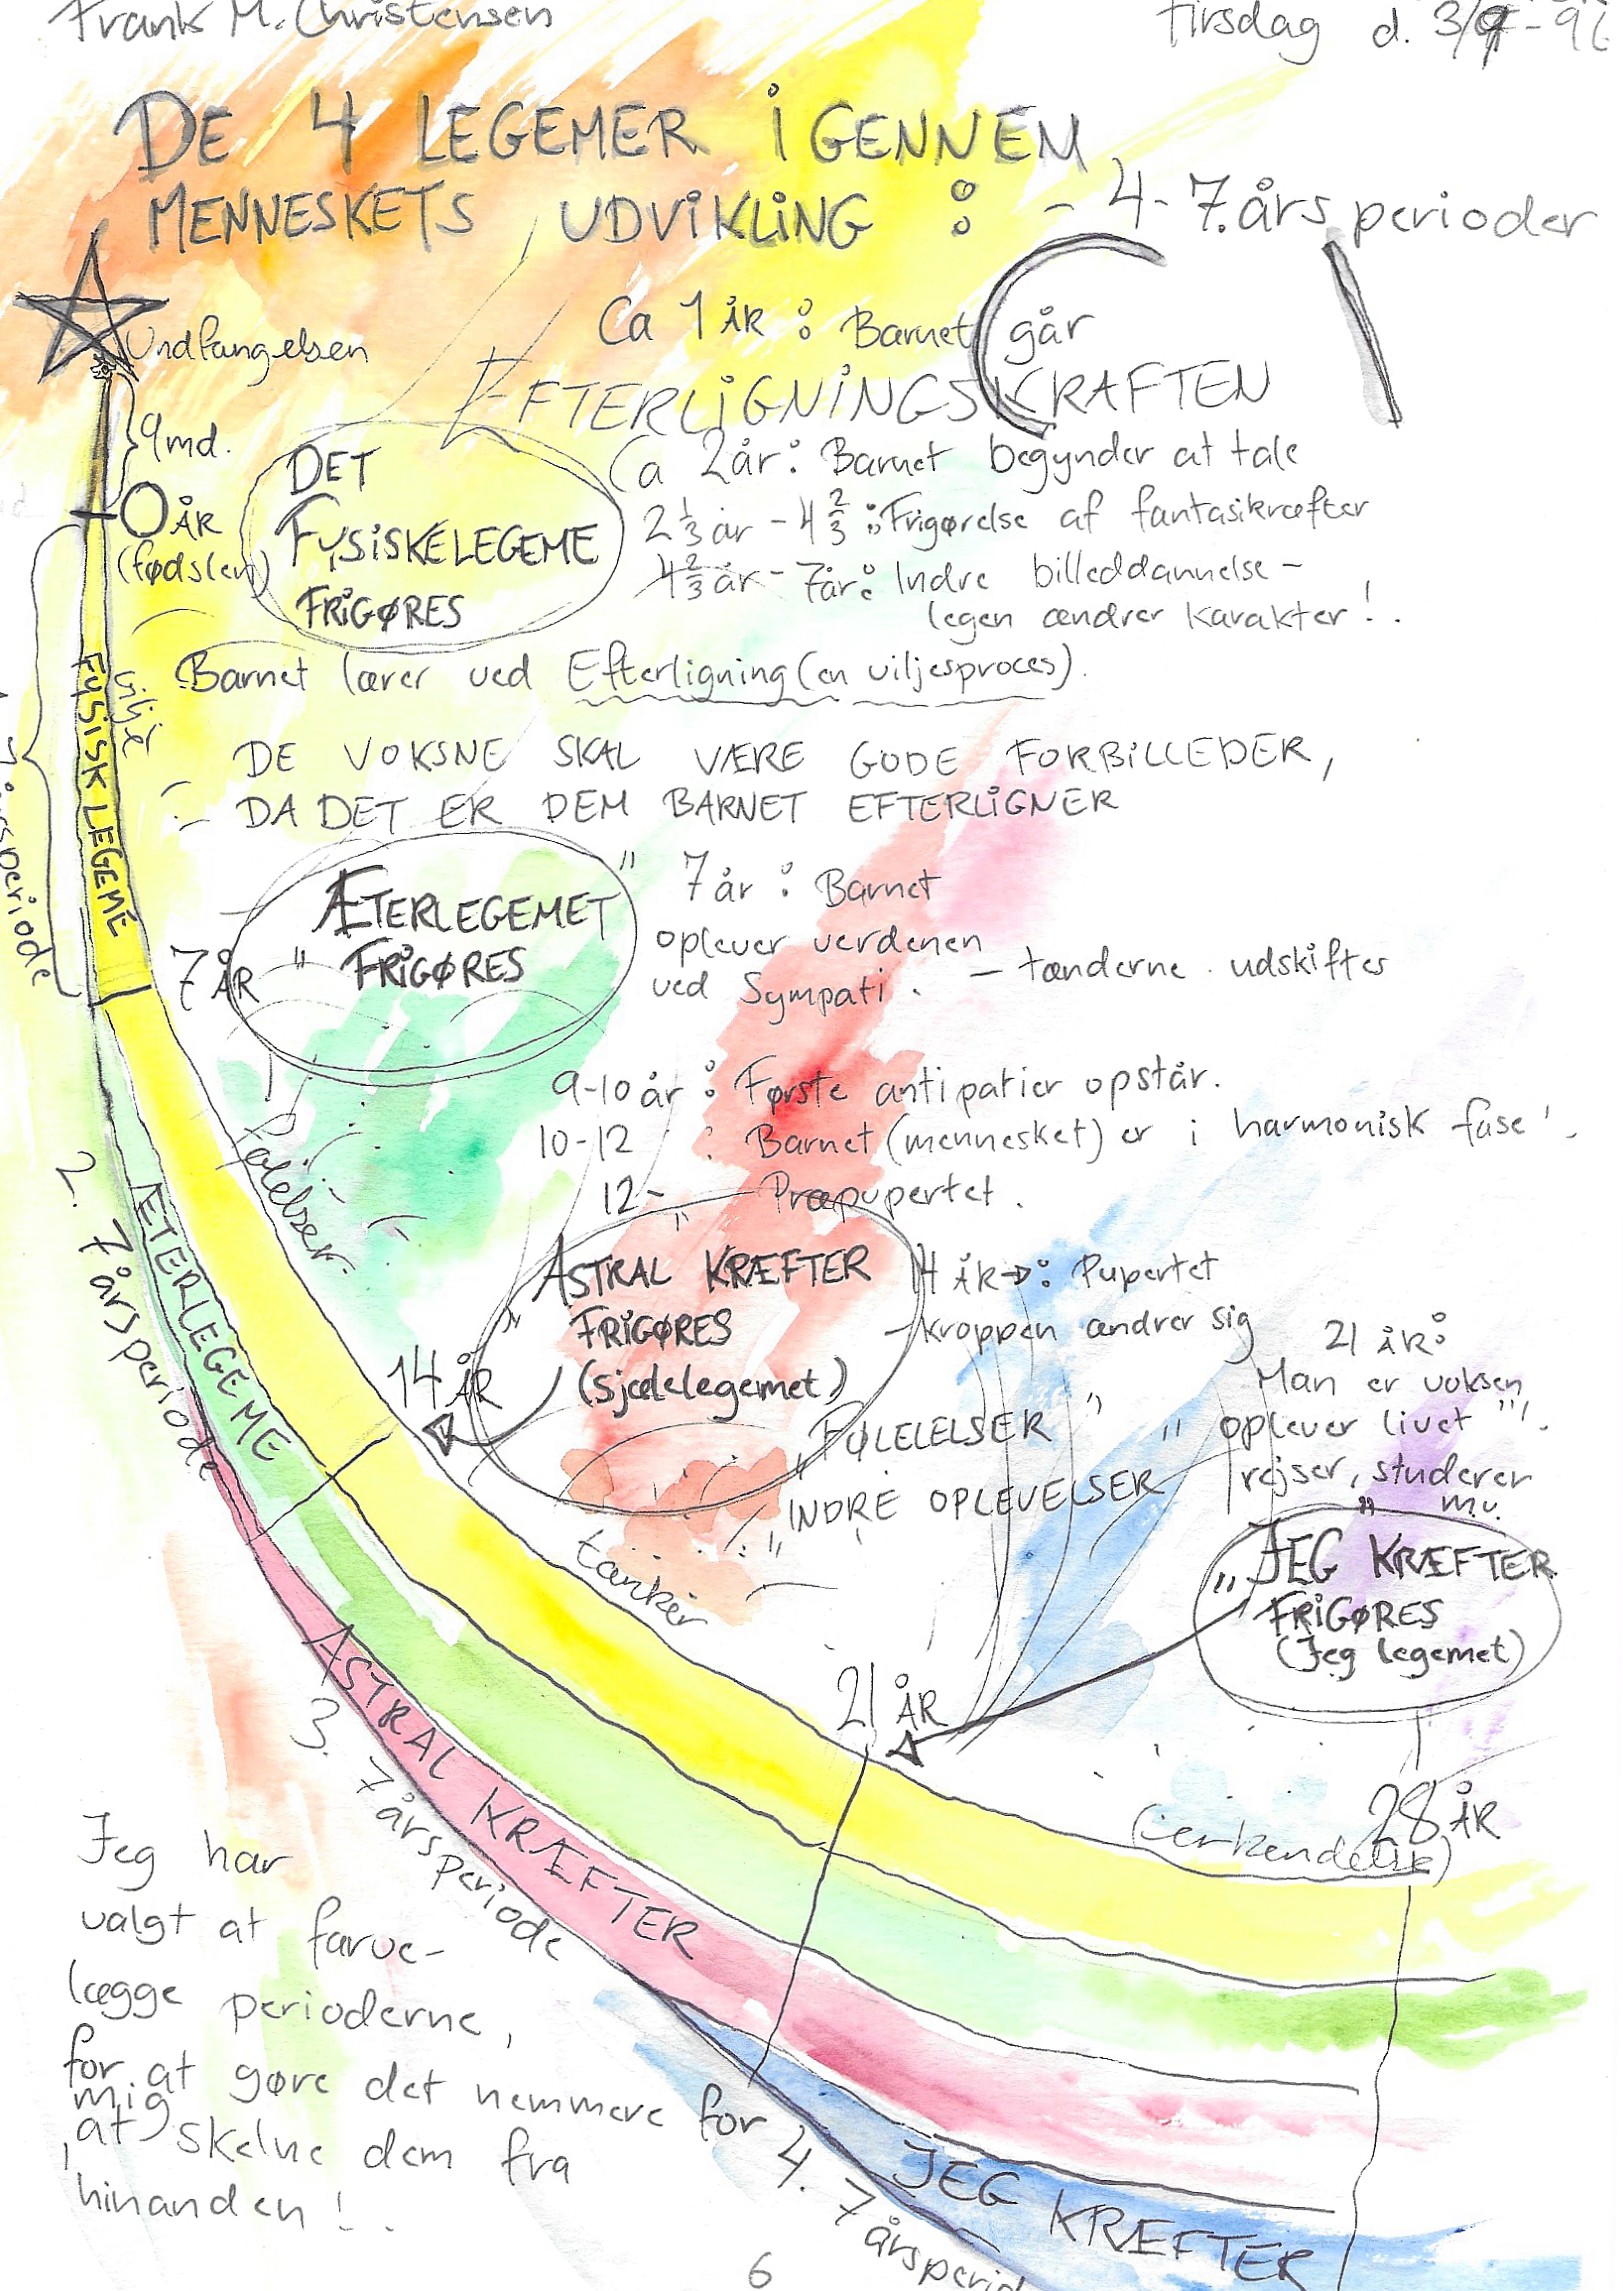 Frank M. Christensen
Tirsdag d. 3/9-96
DE 4 LEGEMER iGENNEM
MENNESKETS UDViKLiNG : - 4-7.års perioder
Undfangelsen
Ca 1 ÅR : Barnet går
EFTERLiGNiNGSKRAFTEN
9md.
0 ÅR
(fødslen)
DET
FYSiSKELEGEME
FRiGØRES
Ca 2år: Barnet begynder at tale
2 1/3 år - 4 2/3 : Frigørelse af fantasikræfter
4 2/3 år - 7år: Indre billeddannelse -
legen ændrer karakter!..
Barnet lærer ved Efterligning (en viljesproces).
FYSiSK LEGEME
vilje
årsperiode
DE VOKSNE SKAL VÆRE GODE FORBiLLEDER,
DA DET ER DEM BARNET EFTERLiGNER
7 ÅR
" ÆTERLEGEMET "
FRiGØRES
7 år : Barnet
oplever verdenen
ved Sympati. - tænderne udskiftes
9-10 år : Første antipatier opstår.
10-12 : Barnet (mennesket) er i harmonisk fase!
12- Præpupertet.
følelser.
2. 7 årsperiode
ÆTERLEGEME
14 ÅR
"ASTRAL KRÆFTER"
FRiGØRES
(sjælelegemet)
14 ÅR→: Pupertet
- kroppen ændrer sig
"FØLELELSER"
"INDRE OPLEVELSER"
21 ÅR:
Man er voksen
oplever livet"!.
rejser, studerer
mv.
"JEG KRÆFTER"
FRiGØRES
(Jeg legemet)
tanker
21 ÅR
28 ÅR
(erkendelse)
ASTRAL KRÆFTER
3. 7 årsperiode
Jeg har
valgt at farve-
lægge perioderne,
for at gøre det nemmere for
mig
at skelne dem fra
hinanden!..
4. 7 årsperiod
JEG KRÆFTER
6